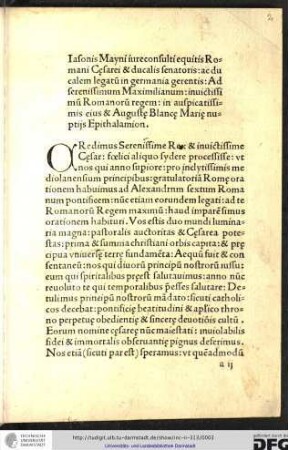 2
Iasonis Mayni iureconsulti equitis Ro-
mani Cęsarei & ducalis senatoris: ac du
calem legatū in germania gerentis: Ad
serenissimum Maximilianum: inuictissi
mū Romanorū regem: in auspicatissi-
mis eius & Augustę Blancę Marię nu-
ptijs Epithalamion.
CRedimus Serenissime Rex & inuictissime
Cęsar: fœlici aliquo sydere processisse: vt
nos qui anno supiore: pro inclytissimis me
diolanensium principibus: gratulatoriā Romę ora
tionem habuimus ad Alexandrum sextum Roma
num pontificem: nūc etiam eorundem legati: ad te
Romanorū Regem maximū: haud imparē simus
orationem habituri. Vos estis duo mundi lumina
ria magna: pastoralis auctoritas & Cęsarea pote
stas: prima & summa christiani orbis capita: & prę
cipua vniuersę terrę fundamēta. Aequū fuit & con
sentaneū: nos qui diuorū principū nostrorū iussu:
eum qui spiritalibus pręest salutauimus: anno nūc
reuoluto te qui temporalibus pręsses salutare: De-
tulimus principū nostrorū mādato: sicuti catholi-
cos decebat: pontificię beatitudini & aplico thro-
no perpetuę obedientię & sincerę deuotiōis cultū.
Eorum nomine cęsareę nūc maiestati: inuiolabilis
fidei & immortalis obseruantię pignus deferimus.
Nos etiā (sicuti par est) speramus: vt quēadmodū
a ij